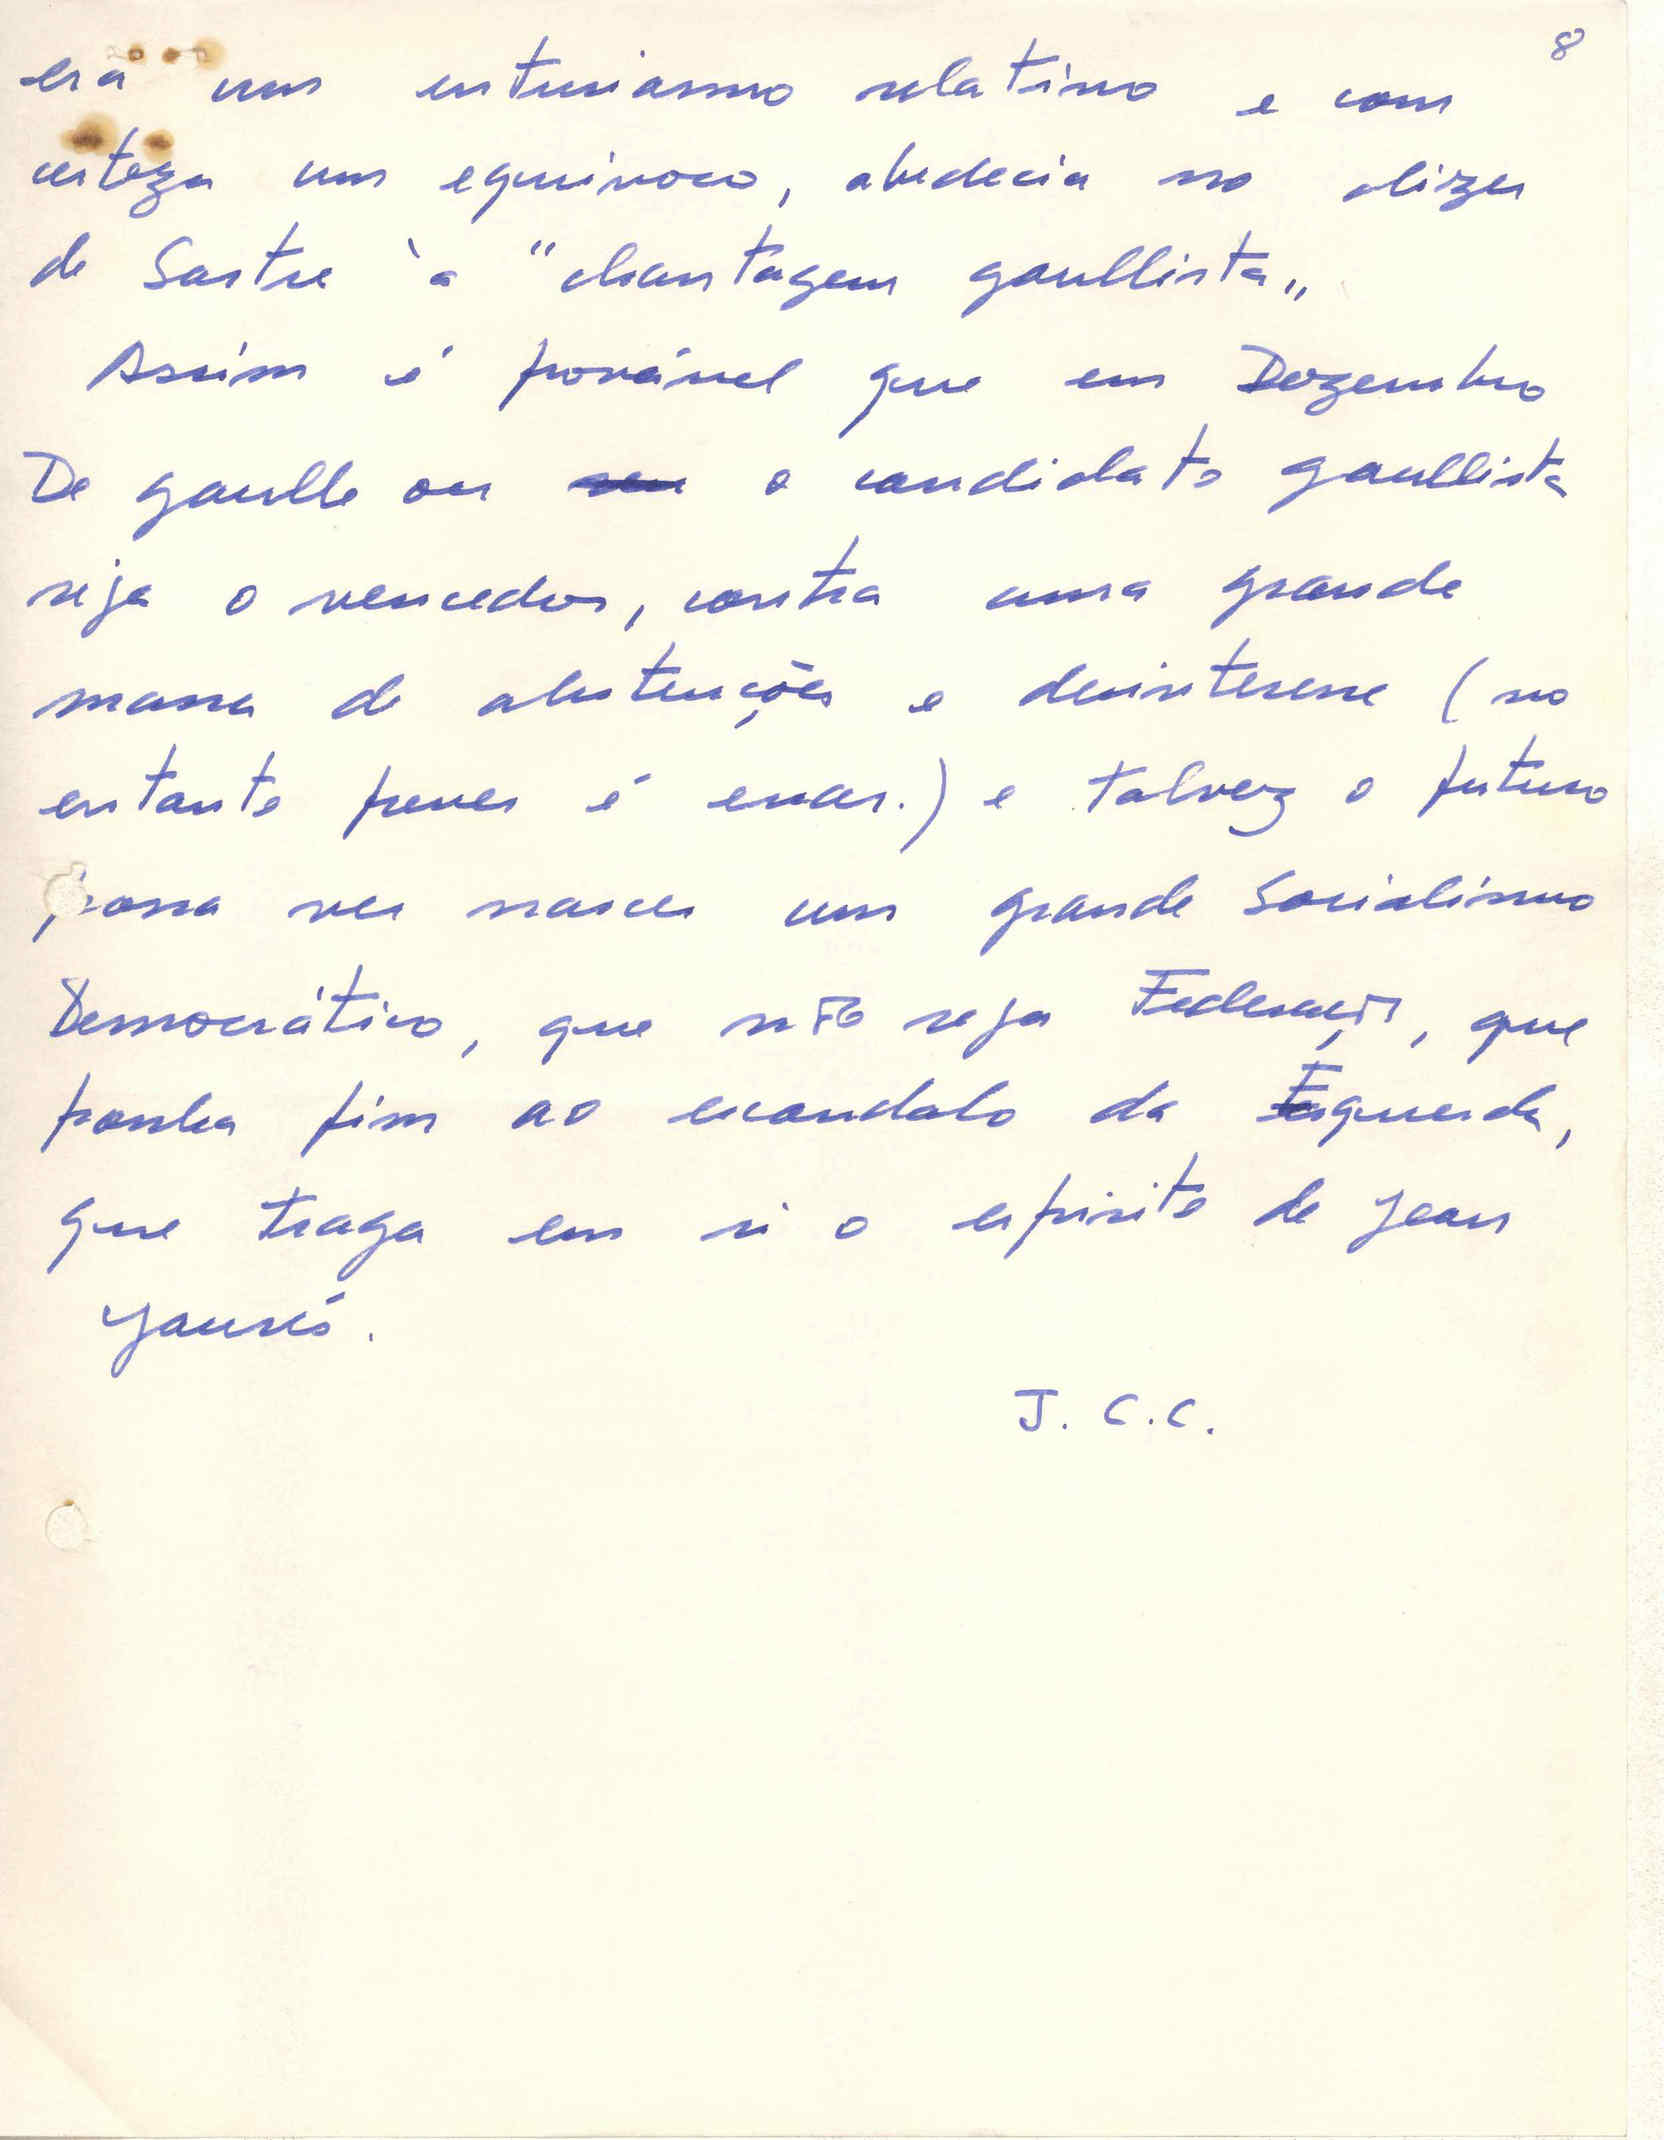 8
era um entusiasmo relativo e com
certeza um equivoco, obedecia no dizer
de Sartre à "chantagem gaullista"
Assim é provável que em Dezembro
De gaulle ou o candidato gaullista
seja o vencedor, contra uma grande
massa de abstenções e desinteresse (no
entanto prever é errar.) e talvez o futuro
possa ver nascer um grande Socialismo
Democrático, que não seja Federação, que
ponha fim ao escandalo da Esquerda,
que traga em si o espirito de Jean
Jaurés.
J. C. C.